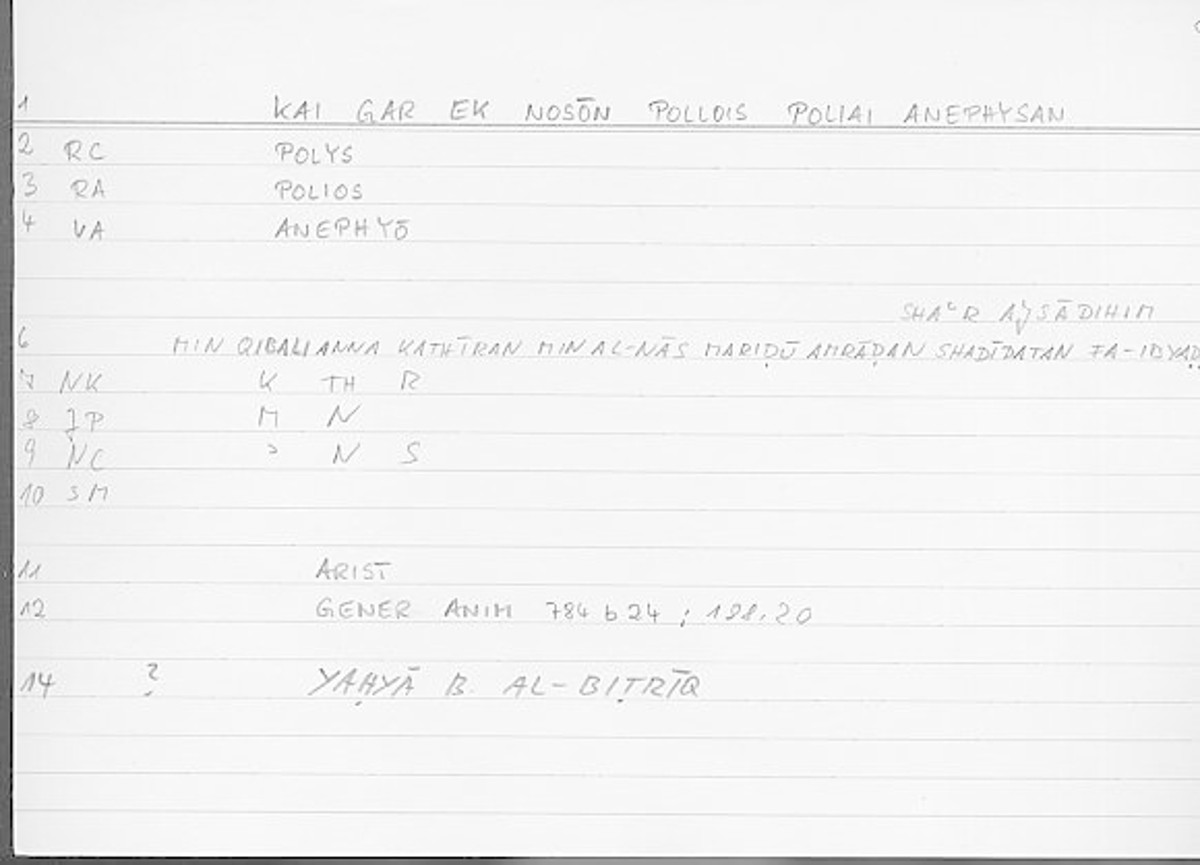 1 KAI GAR EK NOSŌN POLLOIS POLIAI ANEPHYSAN
2 RC POLYS
3 RA POLIOS
4 VA ANEPHYŌ
SHAʿR AJSĀDIHIM
6 MIN QIBALI ANNA KATHĪRAN MIN AL-NĀS MARIḌŪ AMRĀḌAN SHADĪDATAN FA-IBYAḌḌ
7 NK K TH R
8 JP M N
9 NC ʾ N S
10 SM
11 ARIST
12 GENER ANIM 784 b 24 ; 188,20
14 ? YAḤYĀ B. AL-BIṬRĪQ